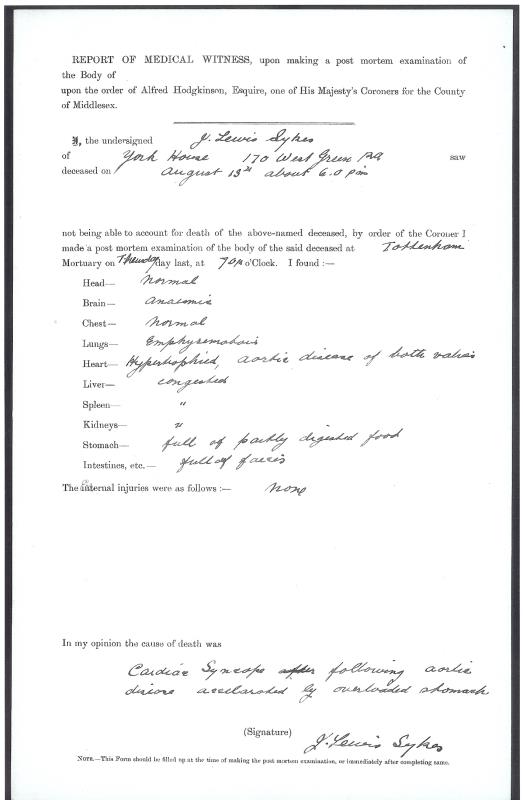 REPORT OF MEDICAL WITNESS, upon making a post mortem examination of
the Body of
upon the order of Alfred Hodgkinson, Esquire, one of His Majesty's Coroners for the County
of Middlesex.
I, the undersigned J. Lewis Sykes
of York House 170 West Green Rd saw
deceased on August 13th about 6.0 pm
not being able to account for death of the above-named deceased, by order of the Coroner I
made a post mortem examination of the body of the said deceased at Tottenham
Mortuary on Thursday last, at 7 o'Clock. I found :—
Head— Normal
Brain— anaemic
Chest— Normal
Lungs— Emphysematous
Heart— Hypertrophied, aortic disease of both valves
Liver— congested
Spleen— "
Kidneys— "
Stomach— full of partly digested food
Intestines, etc.— full of faeces
The external injuries were as follows :— None
In my opinion the cause of death was
Cardiac Syncope after following aortic
disease accelerated by overloaded stomach
(Signature)
J. Lewis Sykes
NOTE.—This Form should be filled up at the time of making the post mortem examination, or immediately after completing same.